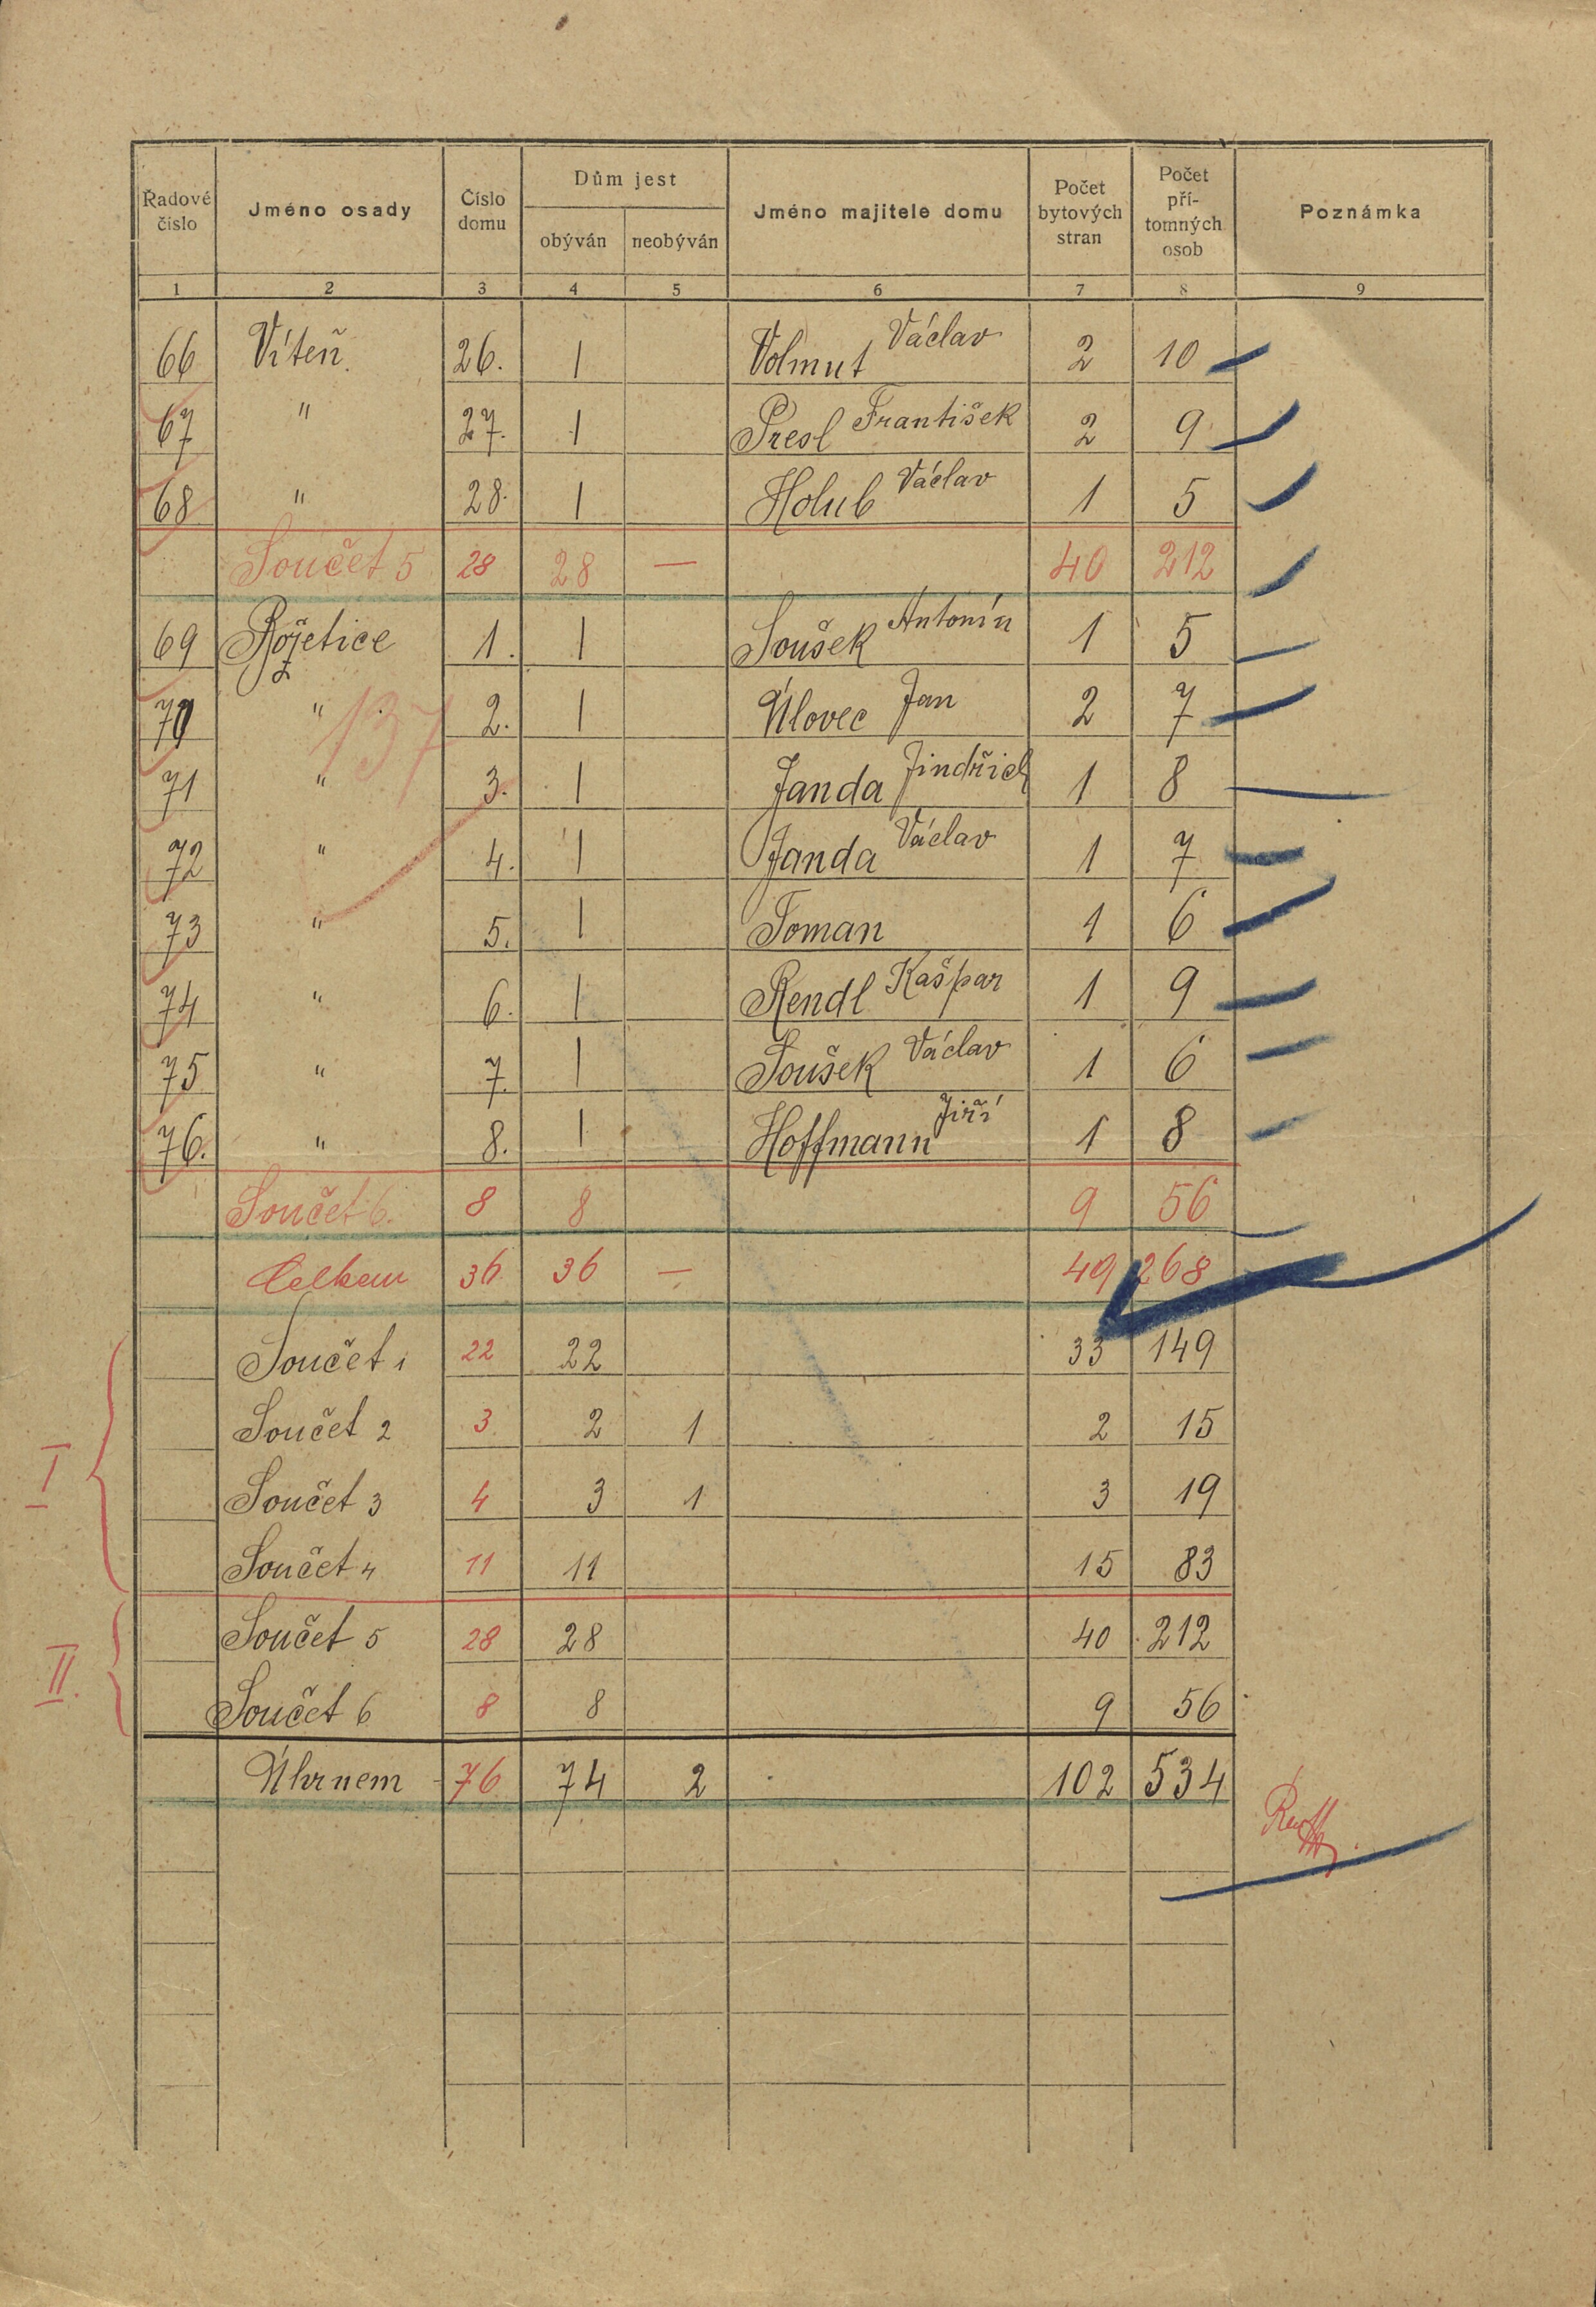 Řadové číslo | Jméno osady | Číslo domu | Dům jest | Jméno majitele domu | Počet bytových stran | Počet přítomných osob | Poznámka
obýván | neobýván
1 2 3 4 5 6 7 8 9
66 Víteň 26. 1 Volmut Václav 2 10
67 " 27. 1 Presl František 2 9
68 " 28. 1 Holub Václav 1 5
Součet 5 28 28 — 40 212
69 Rojetice 1. 1 Soušek Antonín 1 5
70 " 2. 1 Úlovec Jan 2 7
137
71 " 3. 1 Janda Jindřich 1 8
72 " 4. 1 Janda Václav 1 7
73 " 5. 1 Toman 1 6
74 " 6. 1 Rendl Kašpar 1 9
75 " 7. 1 Soušek Václav 1 6
76. " 8. 1 Hoffmann Jiří 1 8
Součet 6. 8 8 9 56
Celkem 36 36 — 49 268
Součet 1 22 22 33 149
Součet 2 3 2 1 2 15
I
Součet 3 4 3 1 3 19
Součet 4 11 11 15 83
Součet 5 28 28 40 212
II.
Součet 6 8 8 9 56
Úhrnem 76 74 2 102 534